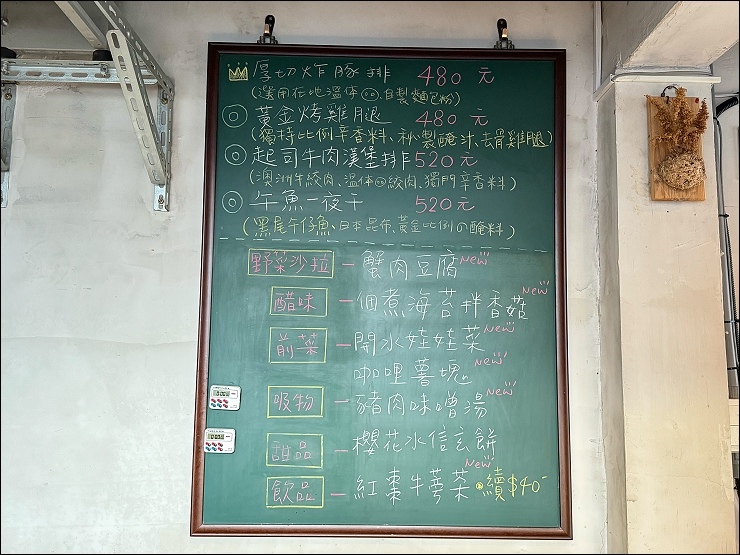 厚切炸豚排 480元
(選用在地溫体、自製麵包粉)
黃金烤雞腿 480元
(獨特比例辛香料、秘製醃汁、去骨雞腿)
起司牛肉漢堡排520元
(澳洲牛絞肉、溫体絞肉、獨門辛香料)
午魚一夜干 520元
(黑尾午仔魚、日本昆布、黃金比例の醃料)
野菜沙拉 - 蟹肉豆腐 New
醋味 - 佃煮海苔拌香菇 New
前菜 - 開水娃娃菜 New
咖哩薯塊 New
吸物 - 豬肉味噌湯
甜品 - 櫻花水信玄餅
飲品 - 紅棗牛蒡茶 New 續$40-